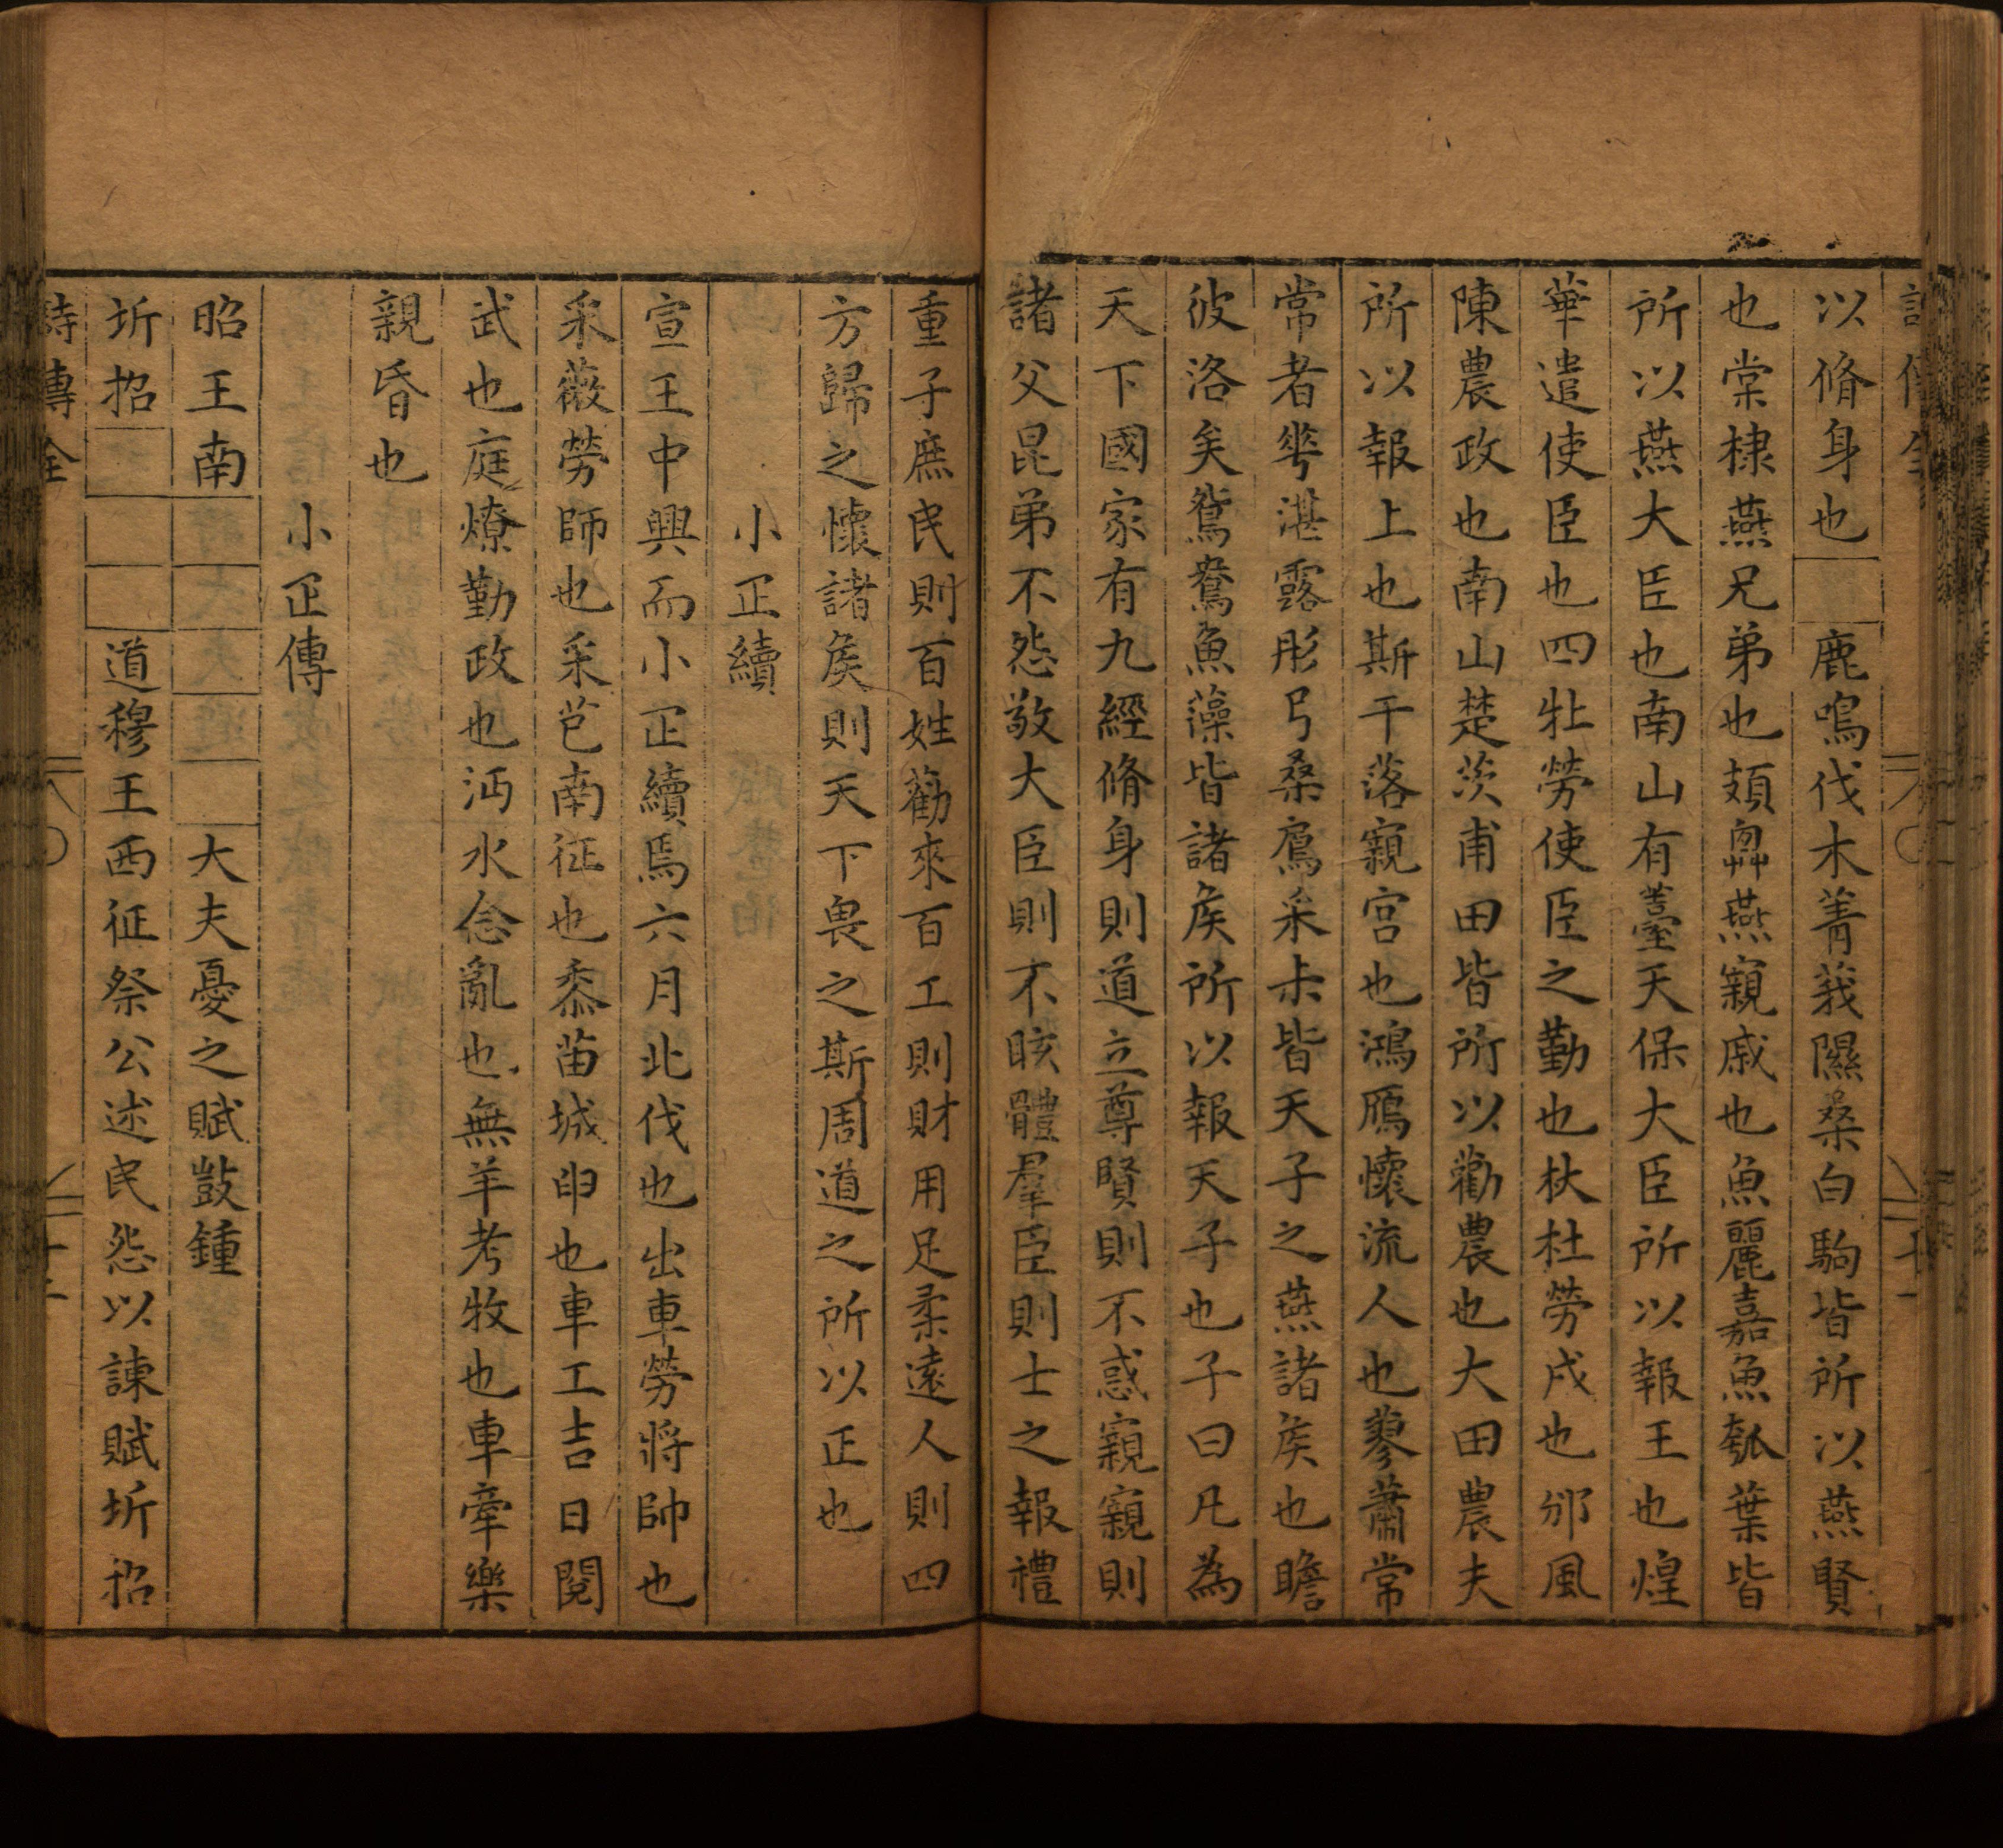 以脩身也□鹿鳴伐木菁莪隰桑白駒皆所以燕賢
也棠棣燕兄弟也頍弁燕親戚也魚麗嘉魚瓠葉皆
所以燕大臣也南山有薹天保大臣所以報王也煌
華遣使臣也四牡勞使臣之勤也杕杜勞戍也邠風
陳農政也南山楚茨甫田皆所以勸農也大田農夫
所以報上也斯干落寴宮也鴻鴈懷流人也蓼蕭常
常者華湛露彤弓桑扈采尗皆天子之燕諸矦也瞻
彼洛矣鴛鴦魚藻皆諸矦所以報天子也子曰凡為
天下國家有九經脩身則道立尊賢則不惑寴寴則
諸父昆弟不怨敬大臣則不眩體羣臣則士之報禮
重子庶民則百姓勸來百工則財用足柔遠人則四
方歸之懷諸矦則天下畏之斯周道之所以正也
小正續
宣王中興而小正續焉六月北伐也出車勞將帥也
采薇勞師也采芑南征也黍苗城申也車工吉日閱
武也庭燎勤政也沔水念亂也無羊考牧也車舝樂
親昏也
小正傳
昭王南□□□□□大夫憂之賦鼓鍾
圻招□□□道穆王西征祭公述民怨以諫賦圻招
詩傳全